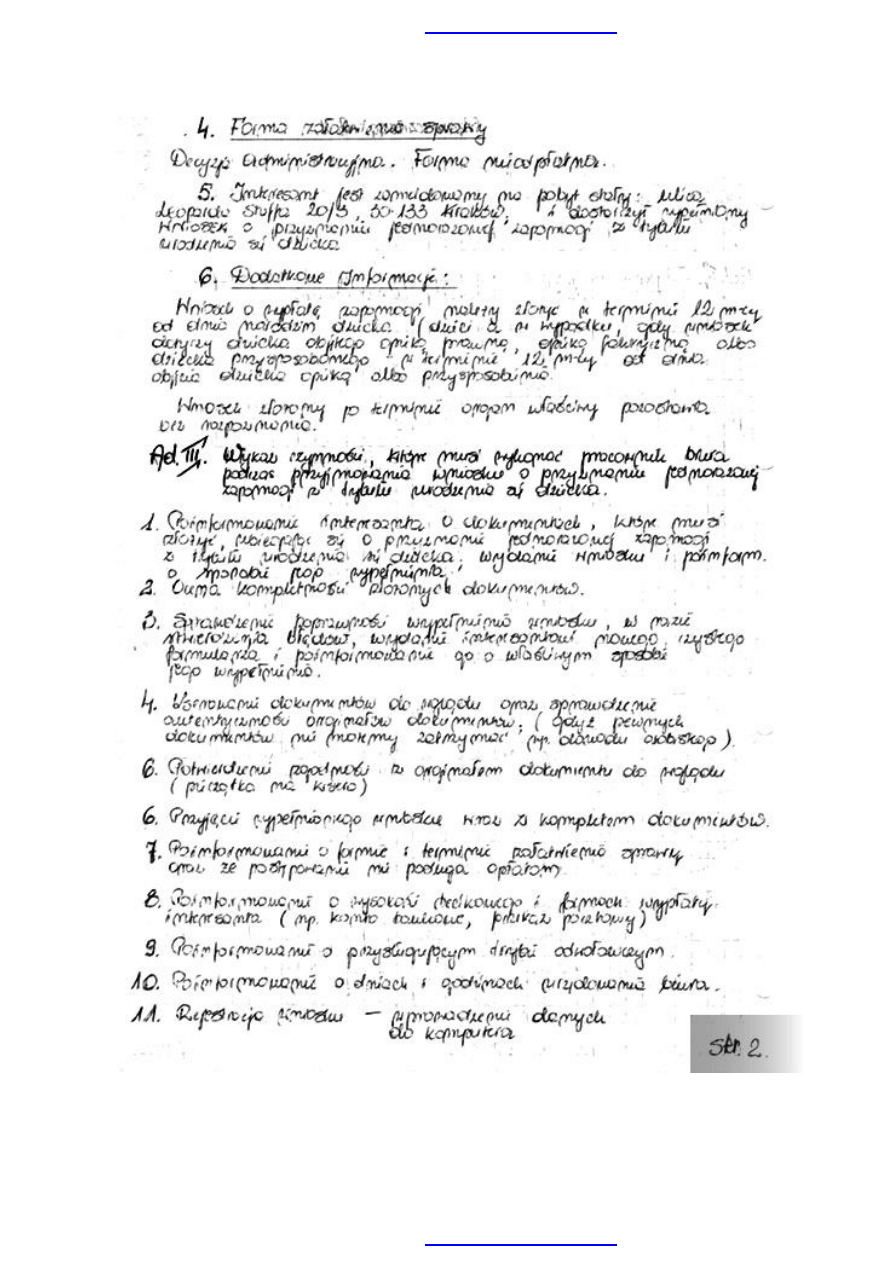 4. Forma załatwienia sprawy
Decyzja administracyjna. Forma nieodpłatna.
5. Interesant jest zameldowany na pobyt stały: ulica
Leopolda Staffa 20/3, 30-133 Kraków, i dostarczył wypełniony
wniosek o przyznanie jednorazowej zapomogi z tytułu
urodzenia się dziecka
6. Dodatkowe Informacje:
Wniosek o wypłatę zapomogi należy złożyć w terminie 12 m-cy
od dnia narodzin dziecka (dzieci a w wypadku, gdy wniosek
dotyczy dziecka objętego opieką prawną, opieką faktyczną albo
dziecka przysposobionego - w terminie 12 m-cy od dnia
objęcia dziecka opieką albo przysposobienia.
Wniosek złożony po terminie organ właściwy pozostawia
bez rozpoznania.
Ad. III. Wykaz czynności, które musi wykonać pracownik biura
podczas przyjmowania wniosku o przyznanie jednorazowej
zapomogi z tytułu urodzenia się dziecka.
1. Poinformowanie interesanta o dokumentach, które musi
złożyć, ubiegając się o przyznanie jednorazowej zapomogi
z tytułu urodzenia się dziecka, wydanie wniosku i poinform.
o sposobie jego wypełnienia,
2. Ocena kompletności złożonych dokumentów.
3. Sprawdzenie poprawności wypełnienia wniosku, w razie
stwierdzenia błędów, wydanie interesantowi nowego, czystego
formularza i poinformowanie go o właściwym sposobie
jego wypełnienia.
4. dokumentów do wglądu oraz sprawdzenie
autentyczności oryginałów dokumentów, (gdyż pewnych
dokumentów nie możemy zatrzymać, np. dowodu osobistego).
6. Potwierdzenie zgodności z oryginałem dokumentu do wglądu
(pieczątka na ksero)
6. Przyjęcie wypełnionego wniosku wraz z kompletem dokumentów.
7. Poinformowanie o formie i terminie załatwienia sprawy
oraz że postępowanie nie podlega opłatom
8. Poinformowanie o wysokości i formach wypłaty
interesanta (np. konto bankowe, przekaz pocztowy)
9. Poinformowanie o przysługującym trybie odwoławczym.
10. Poinformowanie o dniach i godzinach urzędowania biura.
11. Rejestracja wniosku - wprowadzenie danych
do komputera
Str. 2.